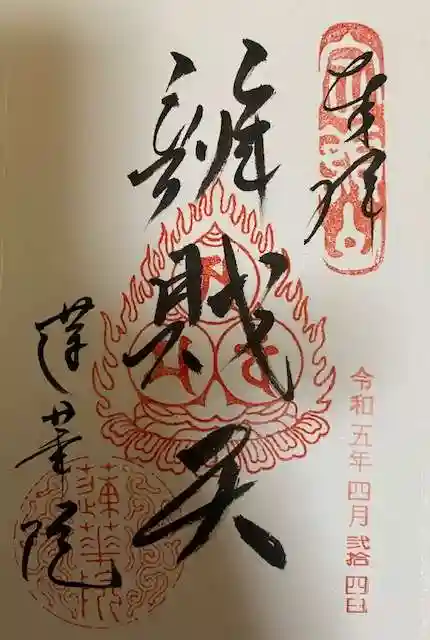 奉拝
令和五年四月弐拾四日
辨財天
蓮華院